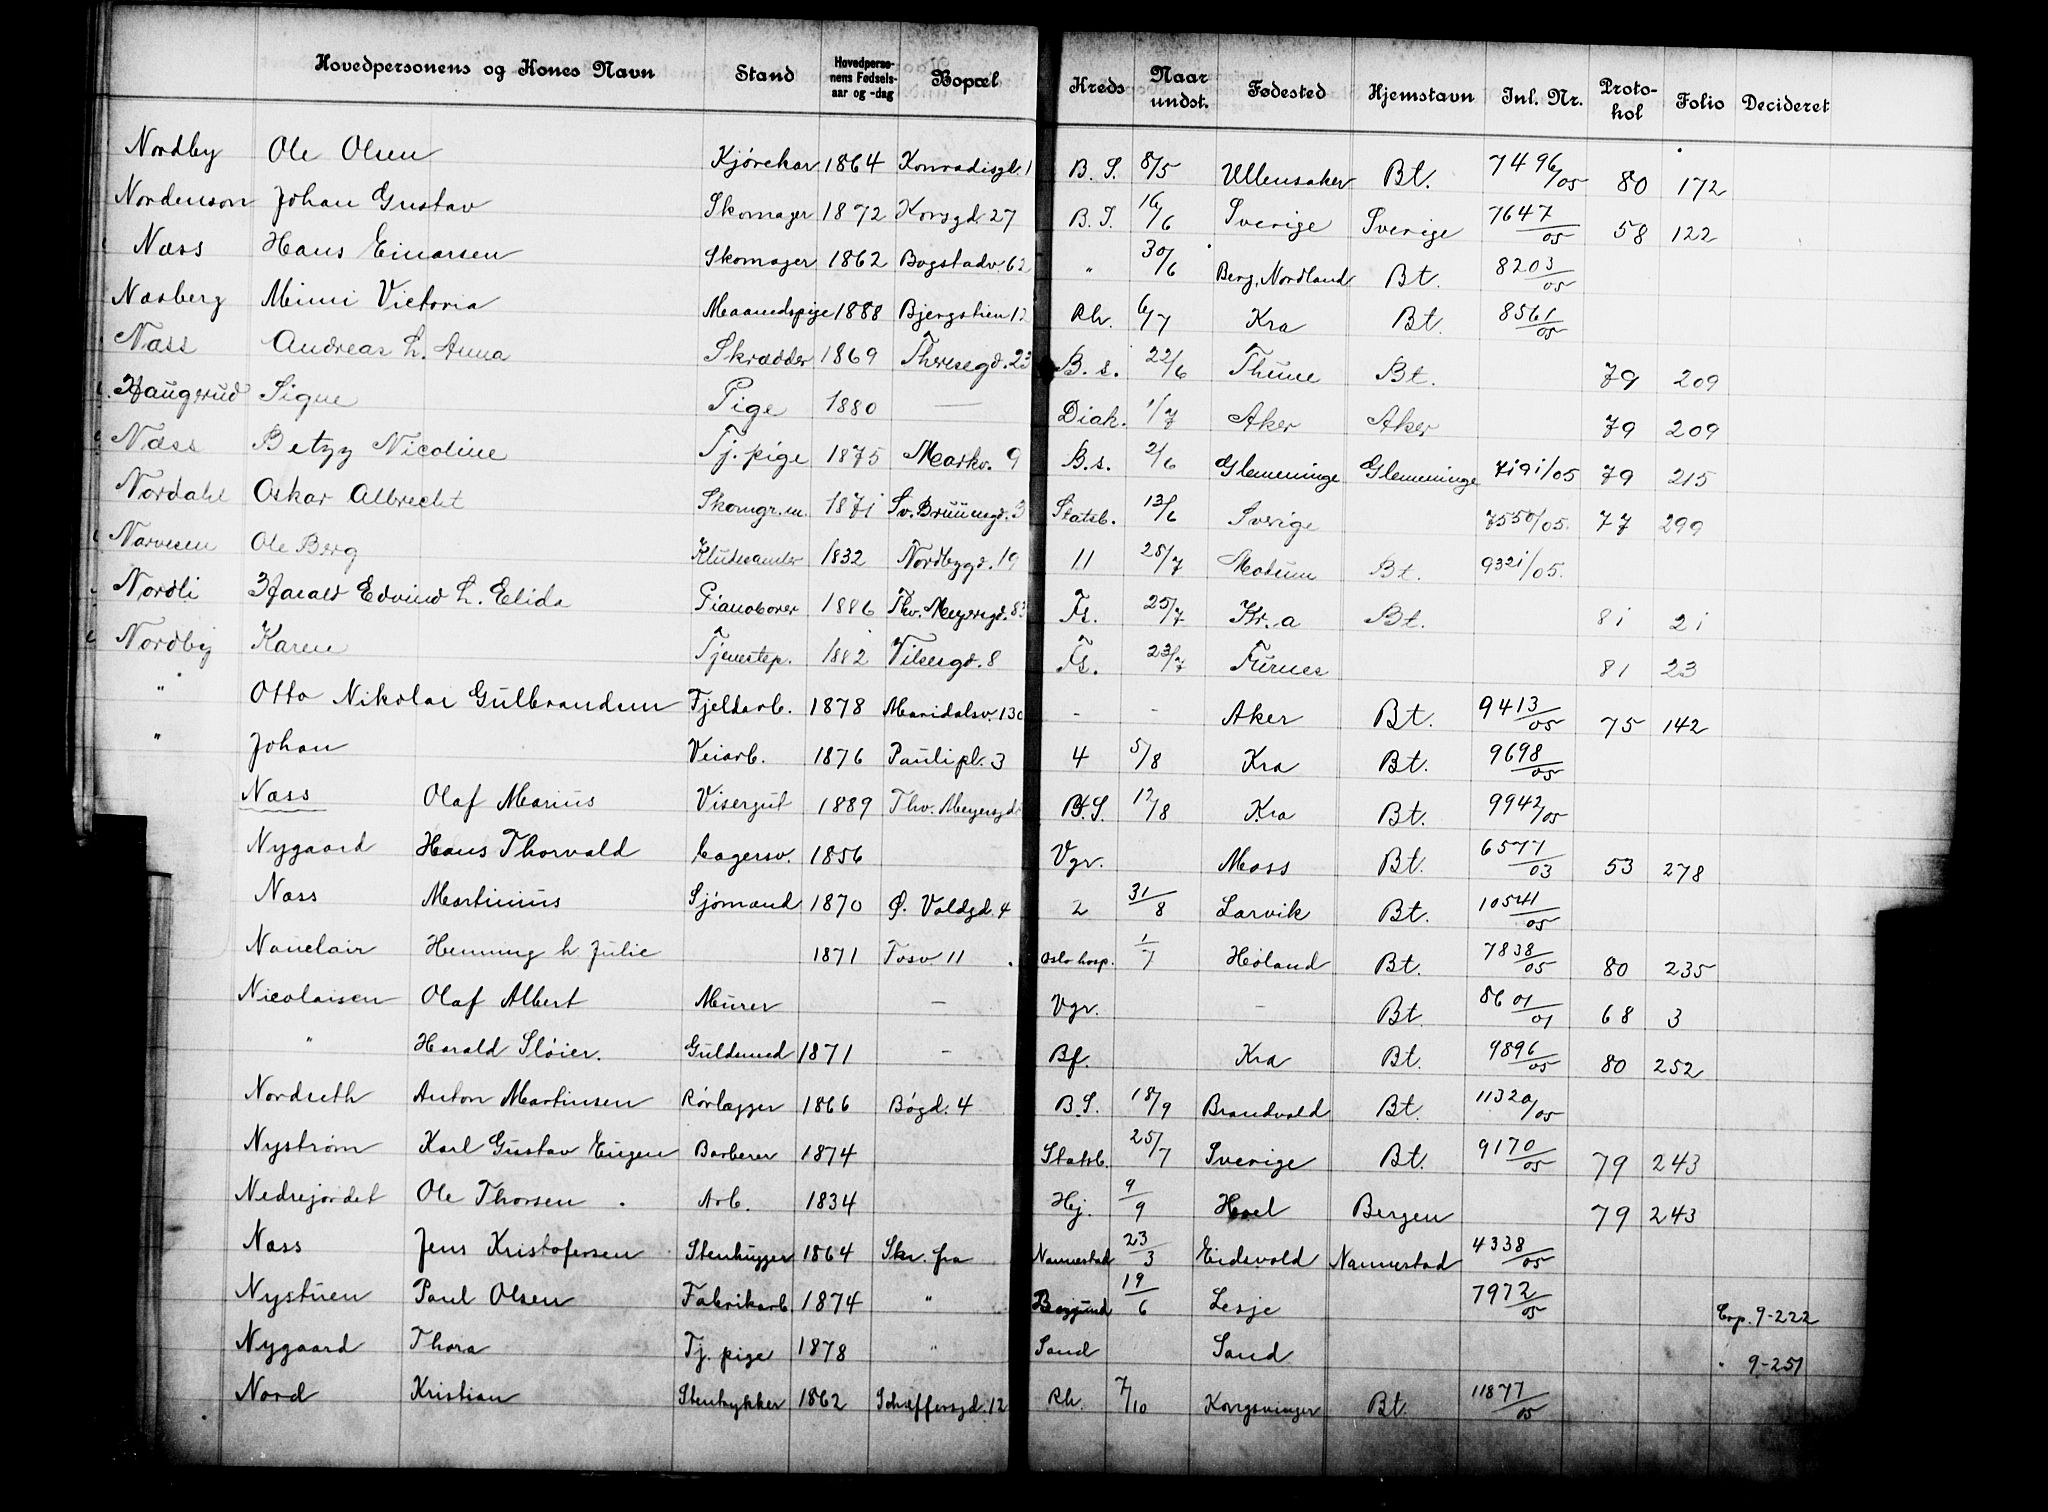 Hovedpersonens og Kones Navn Stand Hovedpersonens Fødselsaar og -dag Bopæl Kreds Naar undst. Fødested Hjemstavn Inl. Nr. Protokol Folio Decideret
Nordby Ole Olsen Kjørekar 1864 Konradisgt. 1 B. S. 8/5 Ullensaker Bt. 7496/05 80 172
Nordenson Johan Gustav Skomager 1872 Korsgd. 27 B. S. 16/6 Sverige Sverige 7647/05 58 122
Næss Hans Einarsen Skomager 1862 Bogstadv. 62 " 30/6 Berg, Nordland Bt. 8203/05
Næsberg Mimi Victoria Maanedspige 1888 Bjergstien 12 Rh. 6/7 Kra Bt. 8561/05
Næss Andreas h. Anna Skrædder 1869 Theresegd. 23 B. s. 22/6 Thune Bt. 79 209
Haugerud Signe Pige 1880 — Diak. 1/7 Aker Aker 79 209
Næss Betzy Nicoline Tj. pige 1875 Markv. 9 B. s. 2/6 Glemminge Glemminge 7191/05 79 215
Nordahl Oskar Albrecht Skomgr. m. 1871 Sv. Bruunsgd. 3 Statsb. 13/6 Sverige 7550/05. 77 299
Narvesen Ole Berg Kludesamler 1832 Nordbygd. 19 11 28/7 Modum Bt. 9321/05.
Nordli Harald Edvind h. Elida Pianoborer 1886 Thv. Meyersgd. 83 Fs. 25/7 Kr.a Bt. 81 21
Nordby Karen Tjenestep. 1882 Vibesgd. 8 Fs. 23/7 Furnes 81 23
" Otto Nikolai Gulbrandsen Fjeldarb. 1878 Maridalsv. 130 - - Aker Bt. 9413/05 75 142
" Johan Veiarb. 1876 Paulipl. 3 4 5/8 Kra Bt. 9698/05
Næss Olaf Marius Visergut 1889 Thv. Meyersgd. B.S. 12/8 Kra Bt. 9942/05
Nygaard Hans Thorvald Bagersv. 1856 Vgr. Moss Bt. 6577/03 53 278
Næss Martinius Sjømand 1870 Ø. Voldgd. 4 2 31/8 Larvik Bt. 10541/05
Nauclair Henning h Julie 1871 Tosv. 11 Oslo hosp. 1/7 Høland Bt. 7838/05 80 235
Nicolaisen Olaf Albert Murer — Vgr. — Bt. 8601/01 68 3
" Harald Sløier. Guldsmed 1871 — Bf. Kra Bt. 9896/05 80 252
Nordseth Anton Martinsen Rørlægger 1866 Bøgd. 4 B.S. 18/9 Brandvold Bt. 11320/05
Nystrøm Karl Gustav Eugen Barberer 1874 Statsb. 25/7 Sverige Bt. 9170/05 79 243
Nedrejordet Ole Thorsen Arb. 1834 Hj. 9/9 Hoel Bergen 79 243
Næss Jens Kristofersen Stenhugger 1864 Skr. fra Nannestad 23/3 Eidsvold Nannestad 4338/05
Nystuen Paul Olsen Fabrikarb. 1874 " Borgund 19/6 Lesje 7972/05 Cop. 9-222
Nygaard Thora Tj. pige 1878 " Sand Sand " 9-251
Nord Kristian Stentrykker 1862 Schæffersgd. 12 Rh. 7/10 Kongsvinger Bt. 11877/05